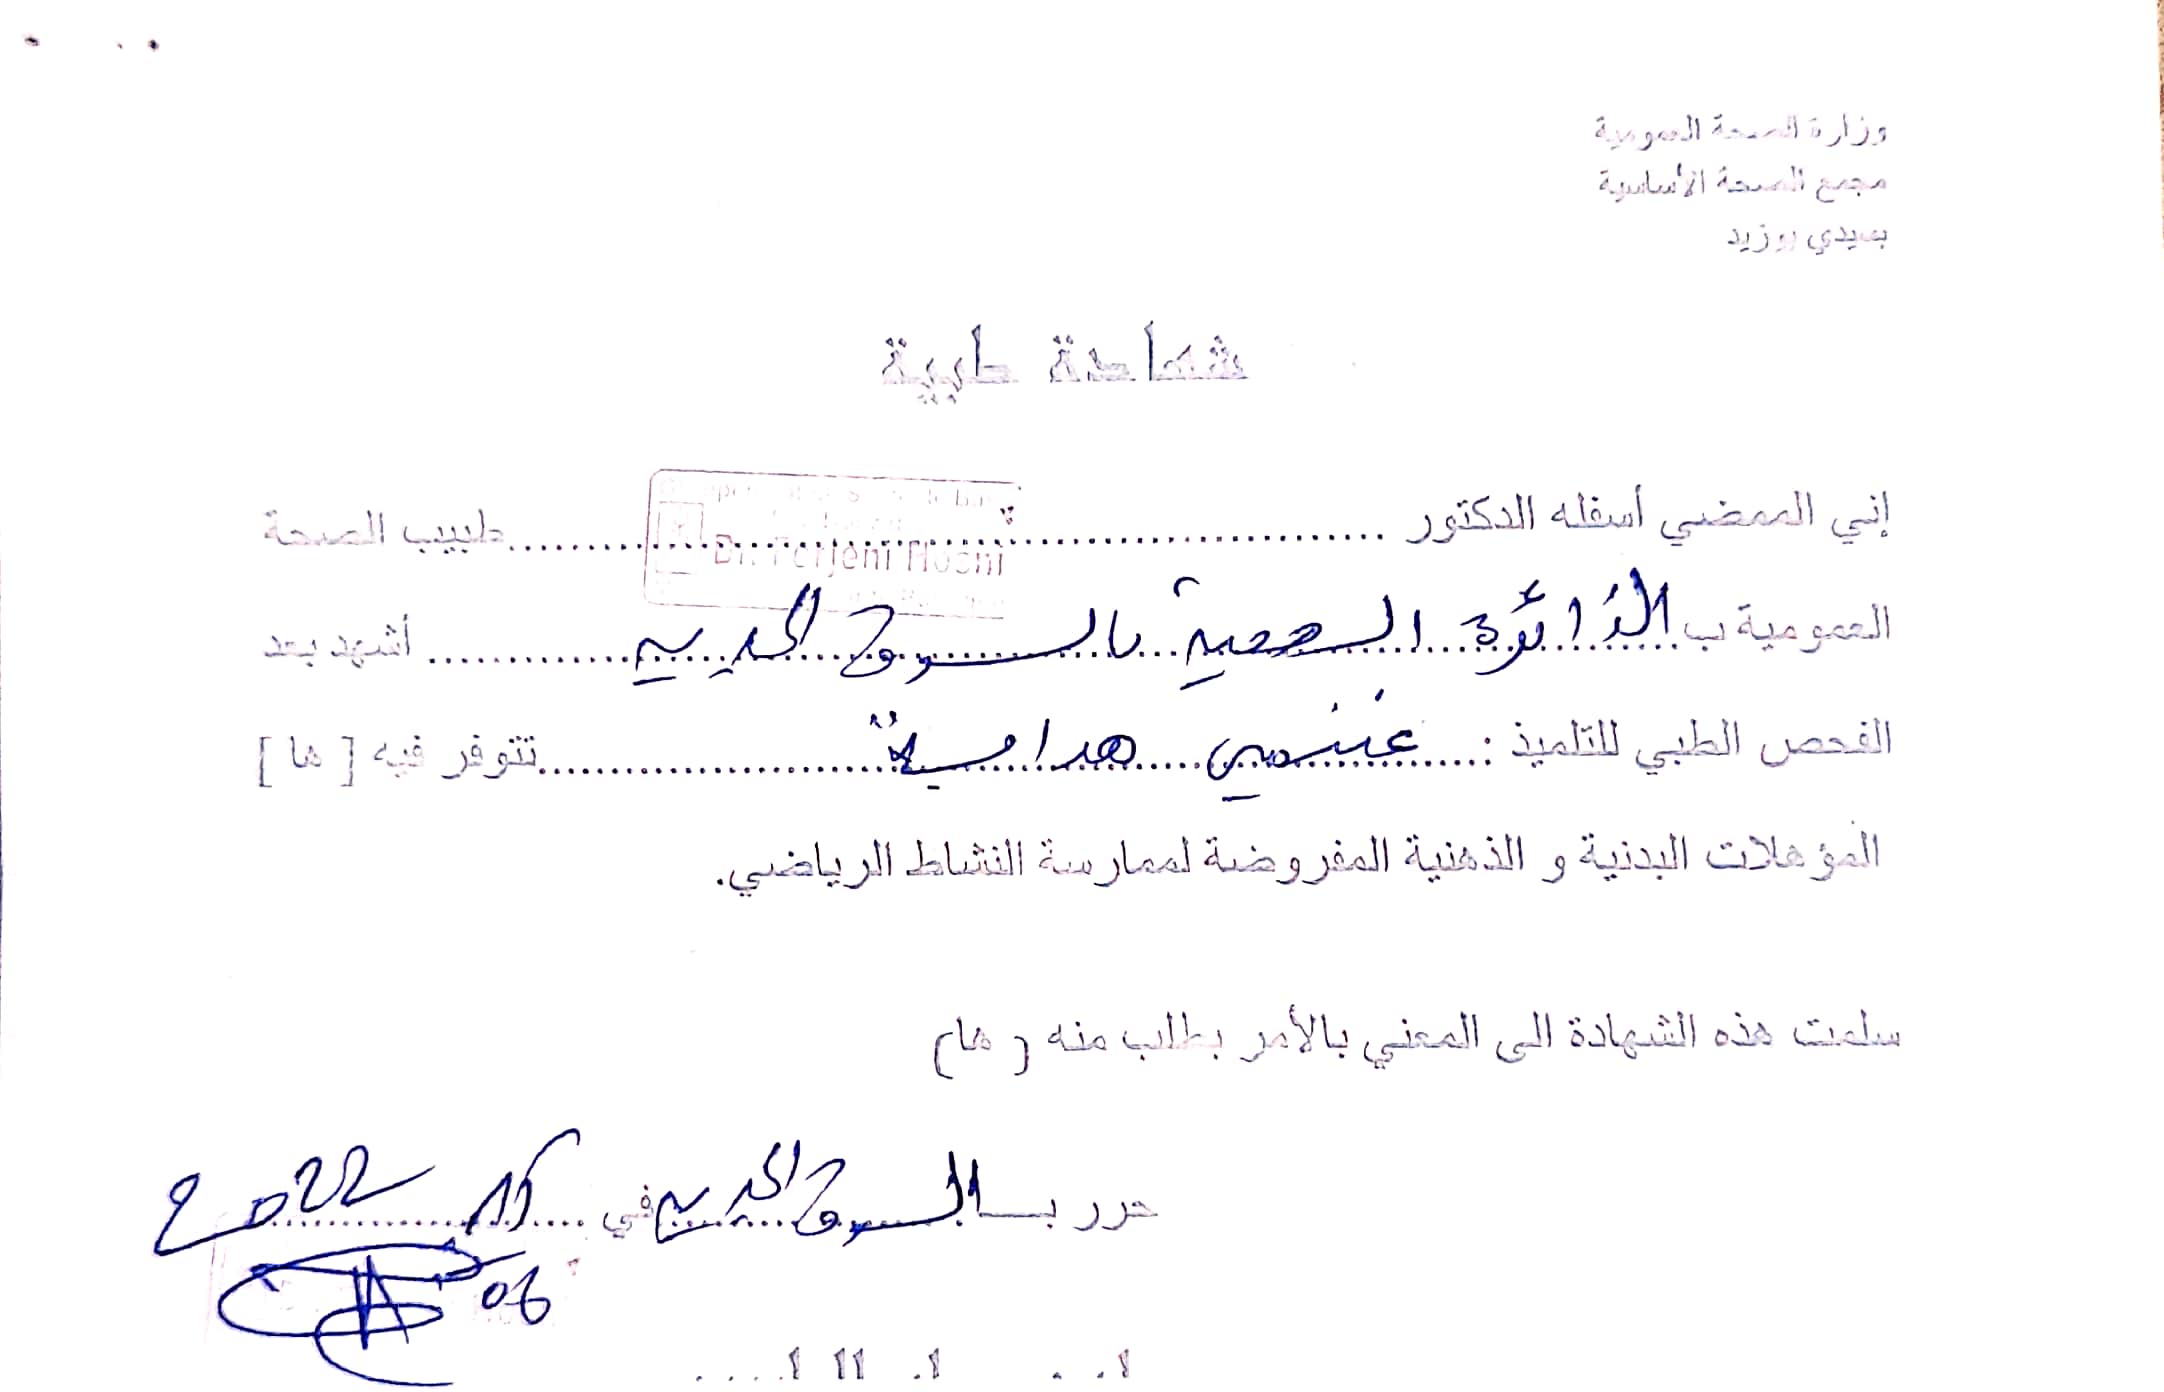 وزارة الصحة العمومية
مجمع الصحة الأساسية
بسيدي بوزيد
شهادة طبية
إني الممضي أسفله الدكتور ........ Dr. Ferjeni Hosni ........ طبيب الصحة
العمومية ب الدائرة الصحية بالسوق الجديد ........ أشهد بعد
الفحص الطبي للتلميذ : ........ تتوفر فيه [ ها ]
المؤهلات البدنية و الذهنية المفروضة لممارسة النشاط الرياضي.
سلمت هذه الشهادة الى المعني بالأمر بطلب منه ( ها)
حرر بـالسوق الجديد في ........ 2022
06